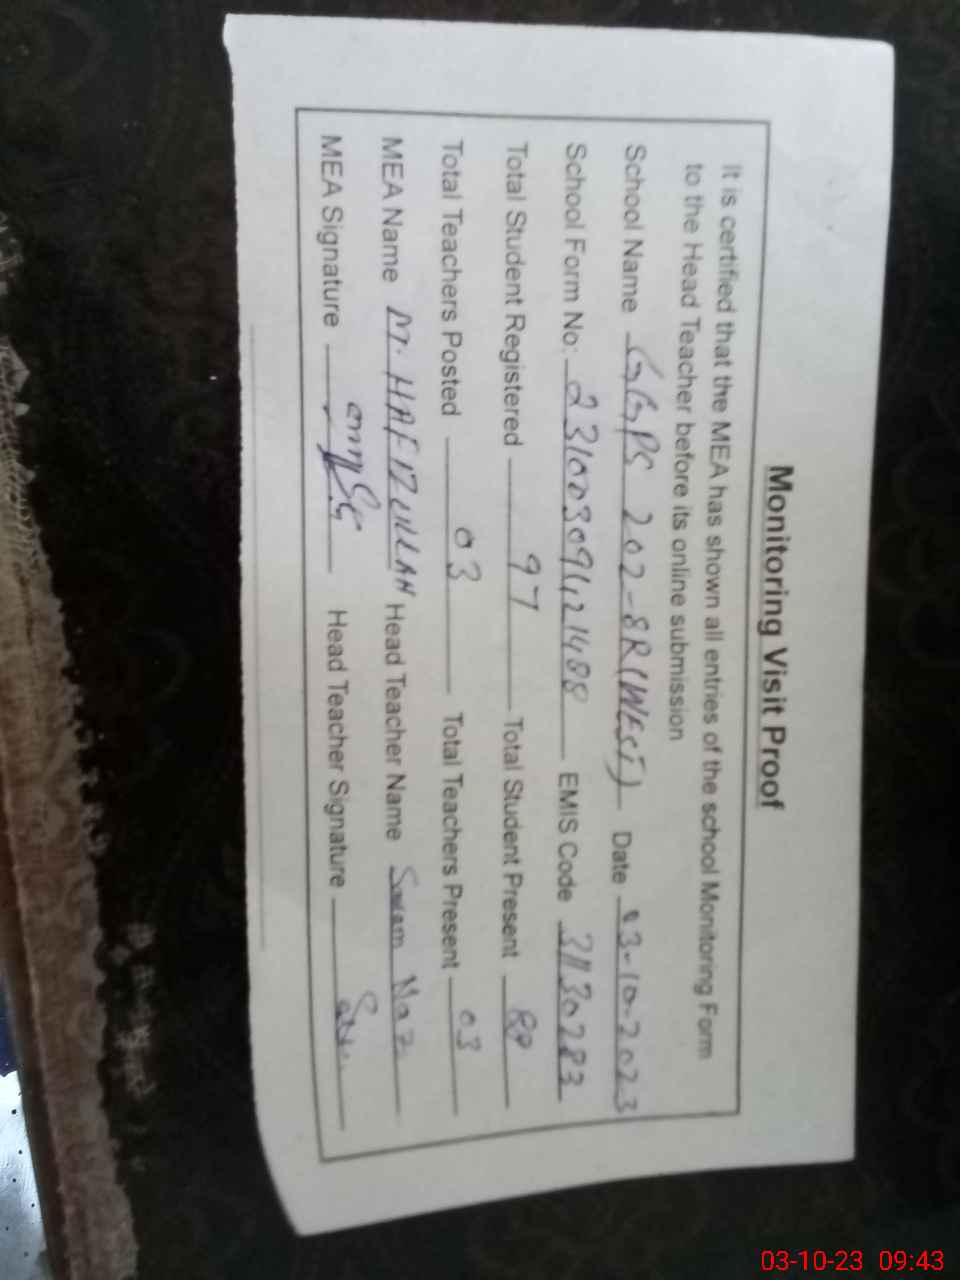 Monitoring Visit Proof
It is certified that the MEA has shown all entries of the school Monitoring Form
to the Head Teacher before its online submission
School Name GGPS 202-8R (WEST) Date 03-10-2023
School Form No: EMIS Code 31130283
Total Student Registered 97 Total Student Present
Total Teachers Posted 03 Total Teachers Present 03
MEA Name M. HAFIZULLAH Head Teacher Name Naz
MEA Signature Head Teacher Signature
03-10-23 09:43